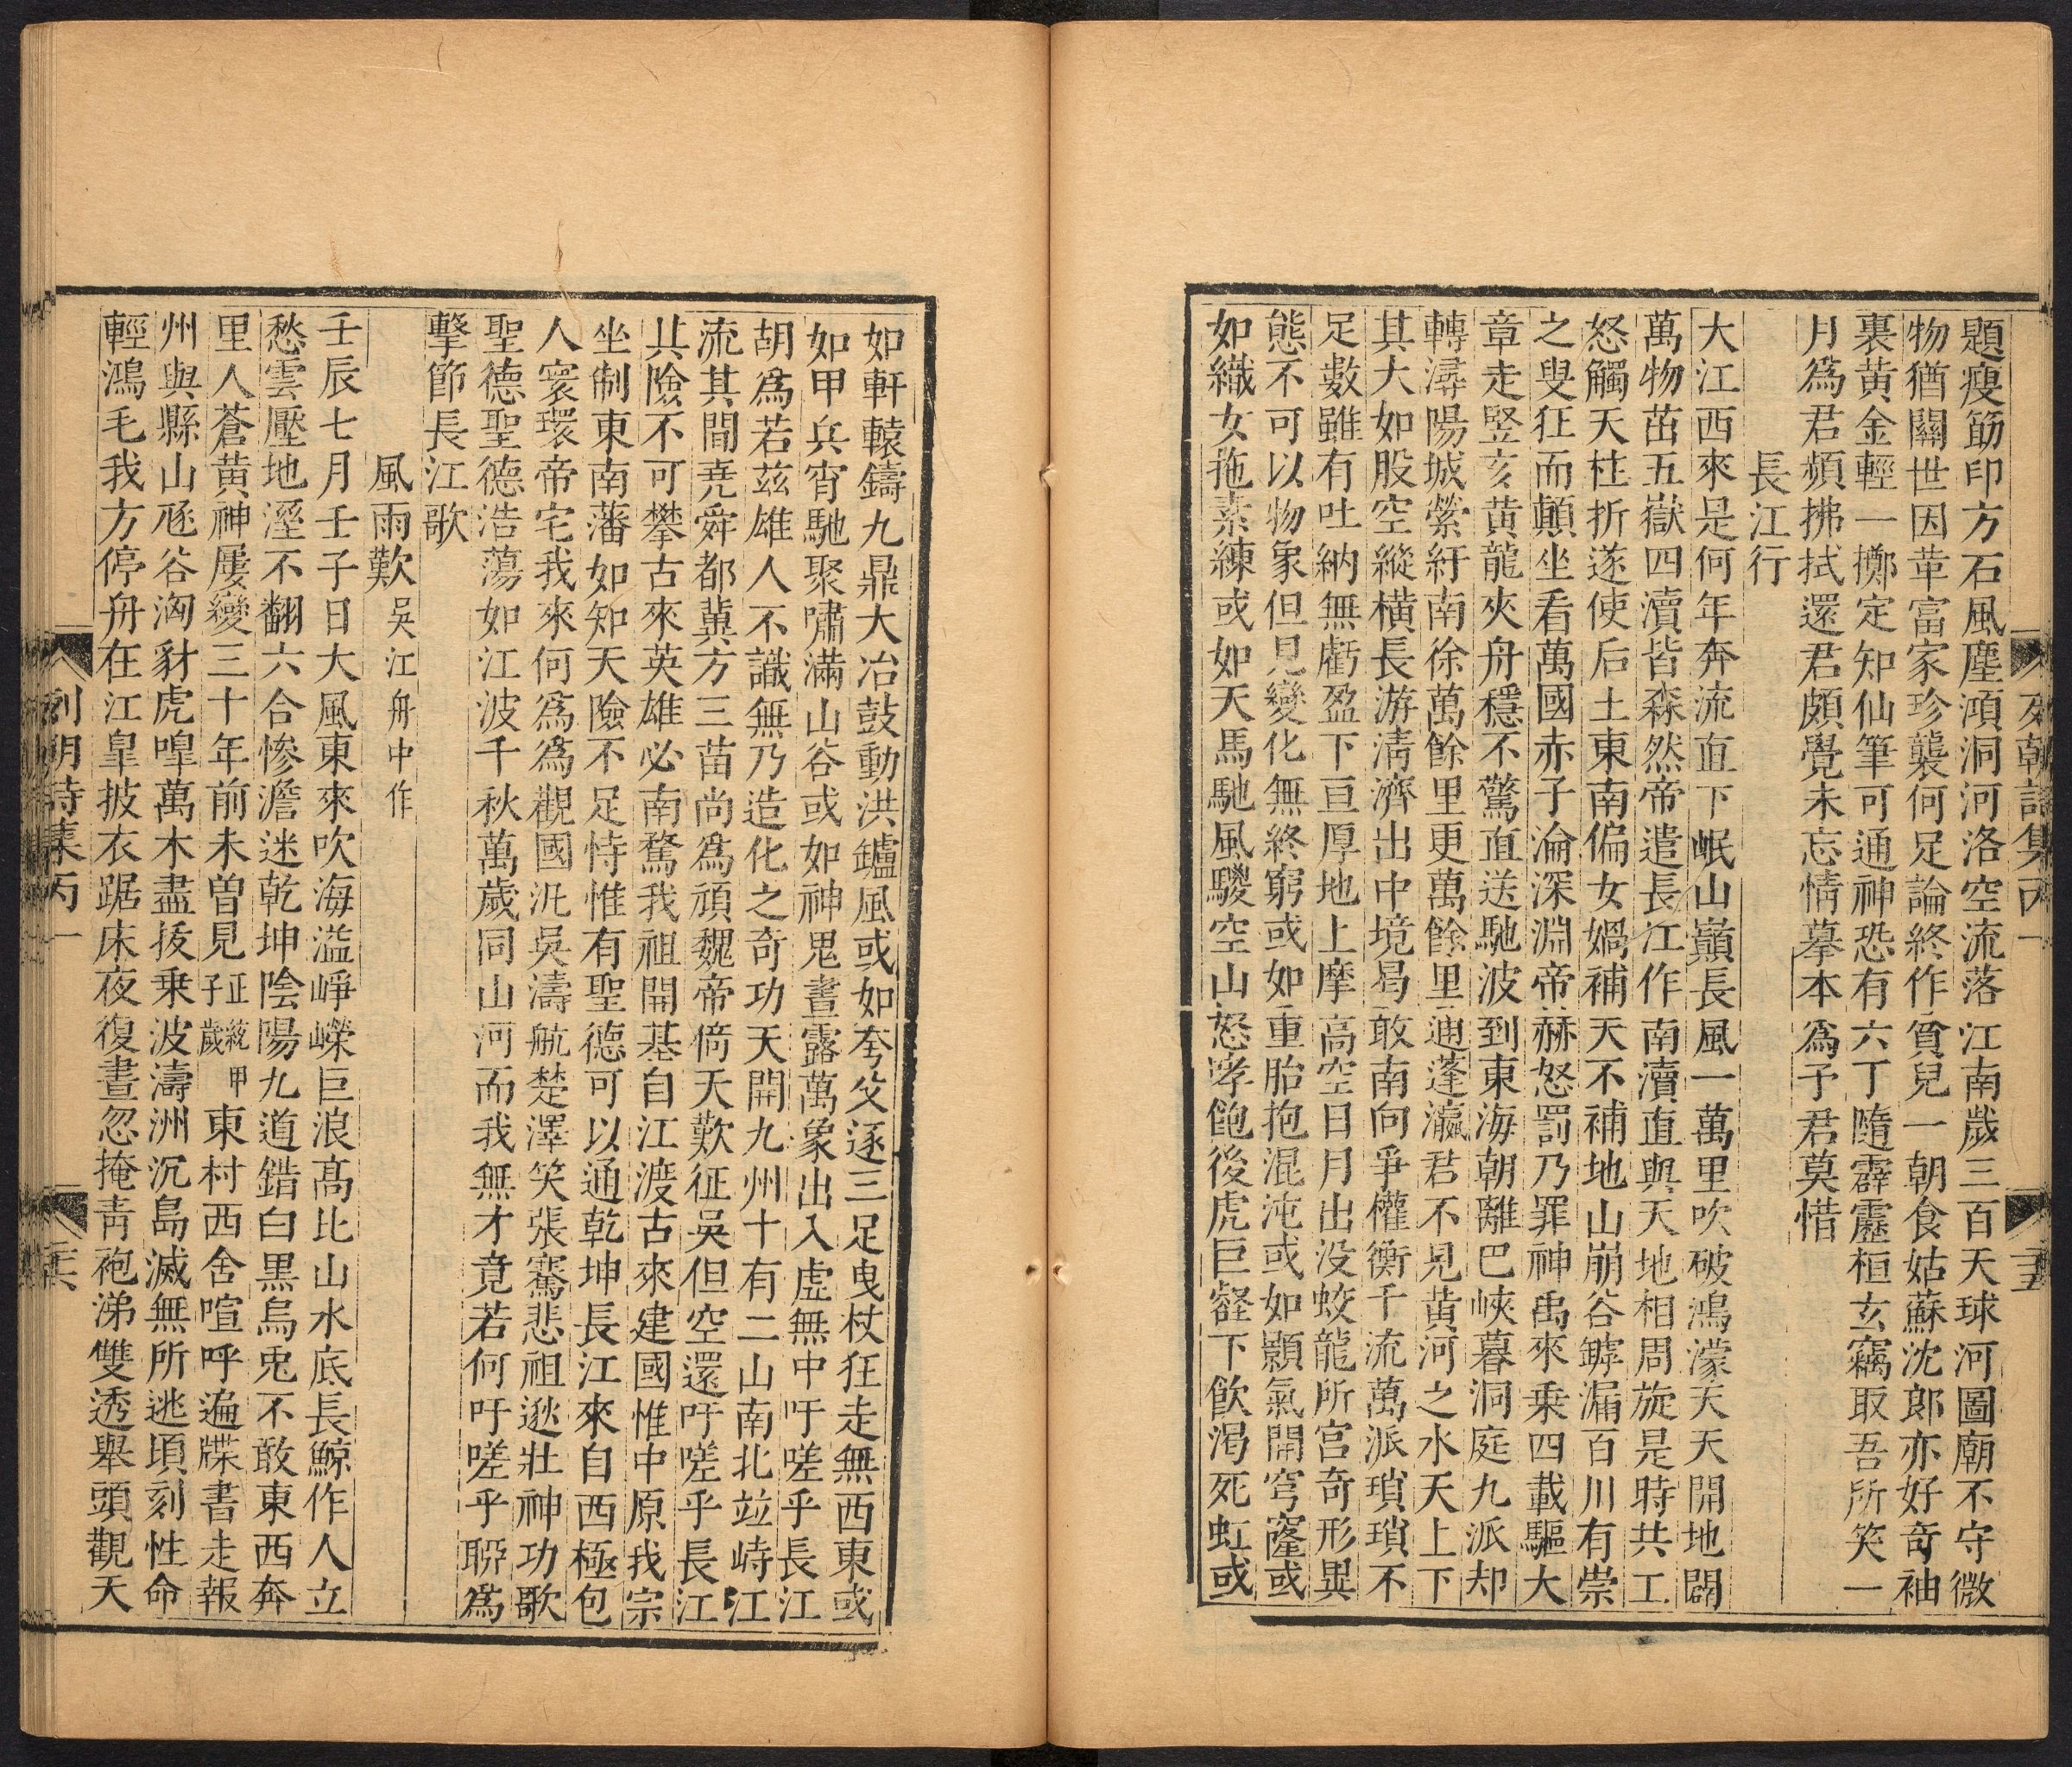 題瘦筋印方石風塵澒洞河洛空流落江南歲三百天球河圖廟不守微
物猶關世因革富家珍襲何足論終作貧兒一朝食姑蘇沈郎亦好奇袖
裏黄金輕一擲定知仙筆可通神恐有六丁隨霹靂桓玄竊取吾所笑一
月爲君頻拂拭還君頗覺未忘情摹本爲子君莫惜
長江行
大江西來是何年奔流直下岷山巔長風一萬里吹破鴻濛天天開地闢
萬物茁五嶽四瀆皆森然帝遣長江作南瀆直與天地相周旋是時共工
怒觸天柱折遂使后土東南偏女媧補天不補地山崩谷罅漏百川有崇
之叟狂而顛坐看萬國赤子淪深淵帝赫怒罰乃罪神禹來乗四載驅大
章走竪亥黄龍夾舟穩不驚直送馳波到東海朝離巴峽暮洞庭九派却
轉潯陽城縈紆南徐萬餘里更萬餘里迪蓬瀛君不見黄河之水天上下
其大如股空縱橫長游淸濟出中境曷敢南向爭權衡千流萬派瑣瑣不
足數雖有吐納無虧盈下亘厚地上摩高空日月出没蛟龍所宫奇形異
態不可以物象但見變化無終窮或如重胎抱混沌或如顥氣開穹窿或
如織女拖素練或如天馬馳風騣空山怒哮飽後虎巨壑下飲渴死虹或
如軒轅鑄九鼎大冶鼓動洪鑪風或如夸父逐三足曳杖狂走無西東或
如甲兵宵馳聚嘯滿山谷或如神鬼晝露萬象出入虛無中吁嗟乎長江
胡爲若茲雄人不識無乃造化之奇功天開九州十有二山南北竝峙江
流其間堯舜都冀方三苗尚爲頑魏帝倚天歎征吳但空還吁嗟乎長江
其險不可攀古來英雄必南騖我祖開基自江渡古來建國惟中原我宗
坐制東南藩如知天險不足恃惟有聖德可以通乾坤長江來自西極包
人寰環帝宅我來何爲爲觀國汎吳濤航楚澤笑張騫悲祖逖壯神功歌
聖德聖德浩蕩如江波千秋萬歲同山河而我無才竟若何吁嗟乎聊爲
擊節長江歌
風雨歎吳江舟中作
壬辰七月壬子日大風東來吹海溢崢嶸巨浪髙比山水底長鯨作人立
愁雲壓地溼不翻六合慘澹迷乾坤陰陽九道錯白黒烏兎不敢東西奔
里人蒼黄神屢變三十年前未曽見正統甲子歲東村西舍喧呼遍牒書走報
州與縣山𢒰谷洶豺虎嘷萬木盡拔乗波濤洲沉島滅無所逃頃刻性命
輕鴻毛我方停舟在江皐披衣踞床夜復晝忽掩靑袍涕雙透舉頭觀天
列朝詩集丙一